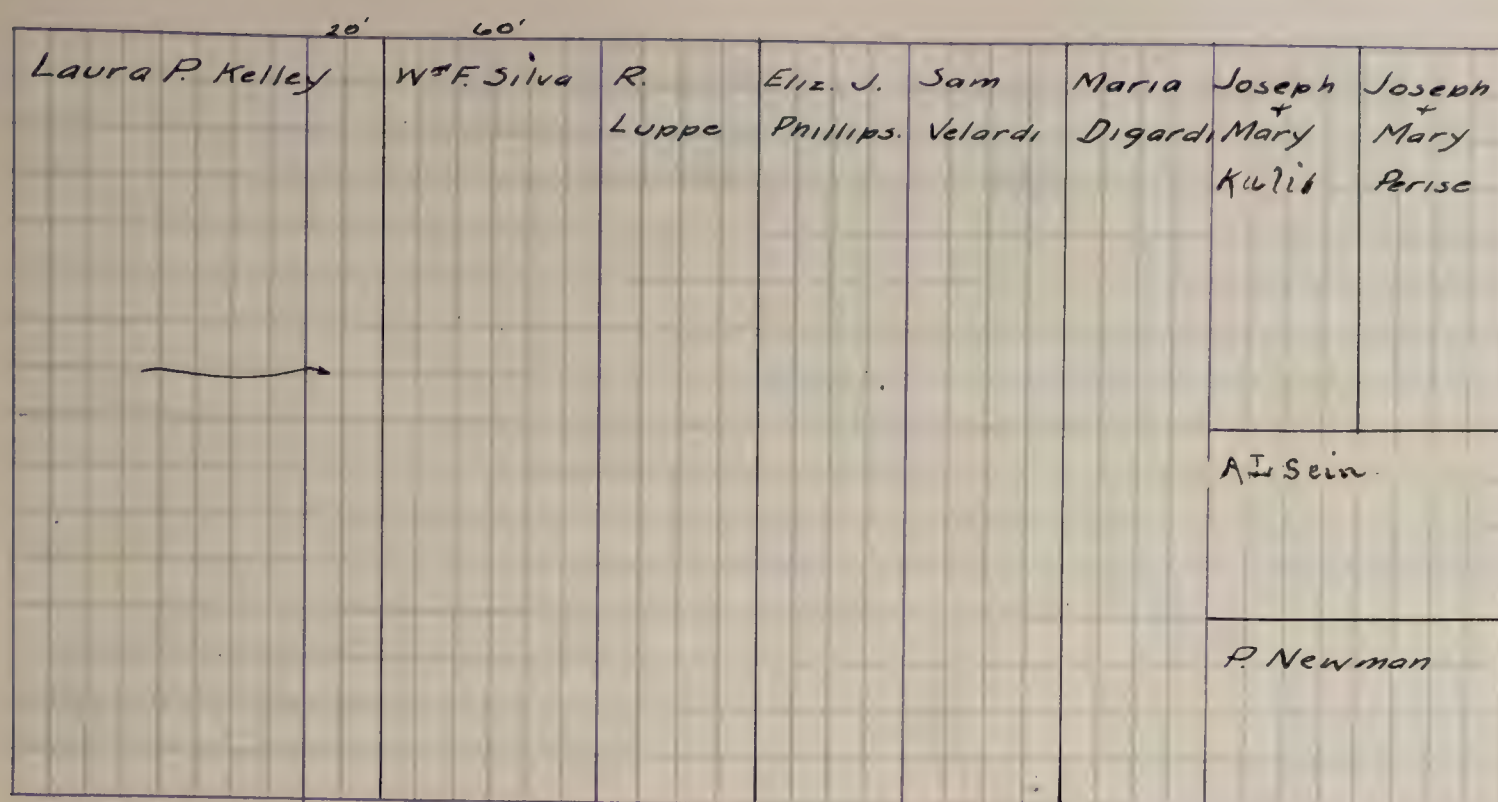 20' 60'
Laura P. Kelley
Wm F. Silva
R.
Luppe
Eliz. J.
Phillips.
Sam
Velardi
Maria
Digardi
Joseph
+
Mary
Joseph
+
Mary
Perise
Sein
P. Newman